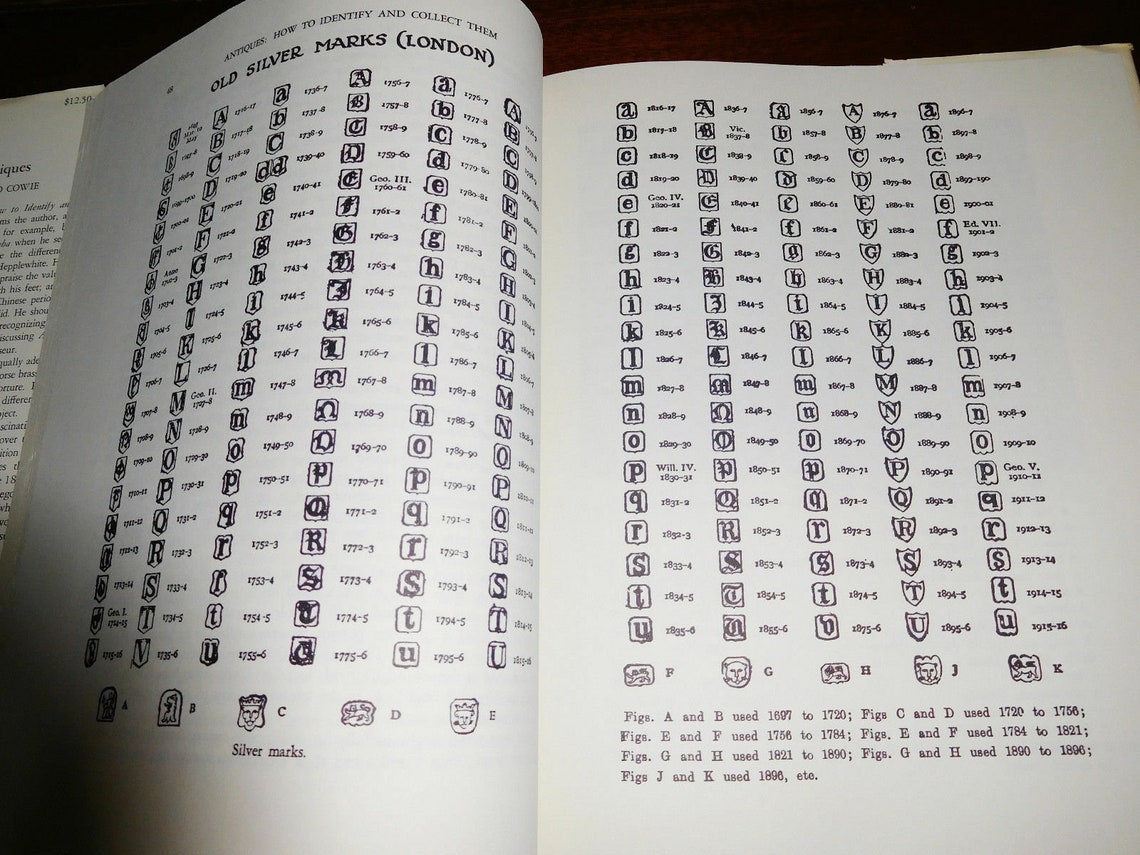 $12.50
iques
COWIE
ow to Identify an
ms the author, a
for example, b
when he se
e the differen
Hepplewhite. H
praise the valu
th his feet; an
Chinese perio
id. He shou
recognizing
scussing A
seur.
ANTIQUES: HOW TO IDENTIFY AND COLLECT THEM
OLD SILVER MARKS (LONDON)
A 1716-17 a 1736-7 A 1756-7 a 1776-7 A
B 1717-18 b 1737-8 B 1757-8 b 1777-8 B
1698-9 C 1718-19 c 1738-9 C 1758-9 c 1778-9 C
1699-1700 D 1719-20 dd 1739-40 D 1759-60 d 1779-80 D
1700-01 E 1720-21 e 1740-41 E Geo. III. 1760-61 e 1780-81 E
1701-2 F 1721-2 f 1741-2 F 1761-2 f 1781-2 F
Anne 1702-3 G 1722-3 g 1742-3 G 1762-3 g 1782-3 G
1703-4 H 1723-4 h 1743-4 H 1763-4 h 1783-4 H
1704-5 I 1724-5 i 1744-5 I 1764-5 i 1784-5 I
1705-6 K 1725-6 k 1745-6 K 1765-6 k 1785-6 K
1706-7 L 1726-7 l 1746-7 L 1766-7 l 1786-7 L
1707-8 M Geo. II. 1727-8 m 1747-8 M 1767-8 m 1787-8 M
1708-9 N 1728-9 n 1748-9 N 1768-9 n 1788-9 N
1709-10 O 1729-30 o 1749-50 O 1769-70 o 1789-90 O
1710-11 P 1730-31 p 1750-51 P 1770-71 p 1790-91 P
1711-12 Q 1731-2 q 1751-2 Q 1771-2 q 1791-2 Q
1712-13 R 1732-3 r 1752-3 R 1772-3 r 1792-3 R
1713-14 S 1733-4 f 1753-4 S 1773-4 S 1793-4 S
Geo. I. 1714-15 T 1734-5 t 1754-5 T 1774-5 t 1794-5 T
1715-16 V 1735-6 u 1755-6 U 1775-6 u 1795-6 U 1815-16
A B C D E
Silver marks.
a 1816-17 A 1836-7 a 1856-7 A 1876-7 a 1896-7
b 1817-18 B Vic. 1837-8 b 1857-8 B 1877-8 b 1897-8
c 1818-19 C 1838-9 c 1858-9 C 1878-9 c 1898-9
d 1819-20 D 1839-40 d 1859-60 D 1879-80 d 1899-190
e Geo. IV. 1820-21 E 1840-41 e 1860-61 E 1880-81 e 1900-01
f 1821-2 F 1841-2 f 1861-2 F 1881-2 f Ed. VII. 1901-2
g 1822-3 G 1842-3 g 1862-3 G 1882-3 g 1902-3
h 1823-4 H 1843-4 h 1863-4 H 1883-4 h 1903-4
i 1824-5 I 1844-5 i 1864-5 I 1884-5 i 1904-5
k 1825-6 K 1845-6 k 1865-6 K 1885-6 k 1905-6
l 1826-7 L 1846-7 l 1866-7 L 1886-7 l 1906-7
m 1827-8 M 1847-8 m 1867-8 M 1887-8 m 1907-8
n 1828-9 N 1848-9 n 1868-9 N 1888-9 n 1908-9
o 1829-30 O 1849-50 o 1869-70 O 1889-90 o 1909-10
p Will. IV. 1830-31 P 1850-51 p 1870-71 P 1890-91 p Geo. V. 1910-11
q 1831-2 Q 1851-2 q 1871-2 Q 1891-2 q 1911-12
r 1832-3 R 1852-3 r 1872-3 R 1892-3 r 1912-13
s 1833-4 S 1853-4 s 1873-4 S 1893-4 s 1913-14
t 1834-5 T 1854-5 t 1874-5 T 1894-5 t 1914-15
u 1835-6 U 1855-6 u 1875-6 U 1895-6 u 1915-16
F G H J K
Figs. A and B used 1697 to 1720; Figs C and D used 1720 to 1756;
Figs. E and F used 1756 to 1784; Figs. E and F used 1784 to 1821;
Figs. G and H used 1821 to 1890; Figs. G and H used 1890 to 1896;
Figs J and K used 1896, etc.